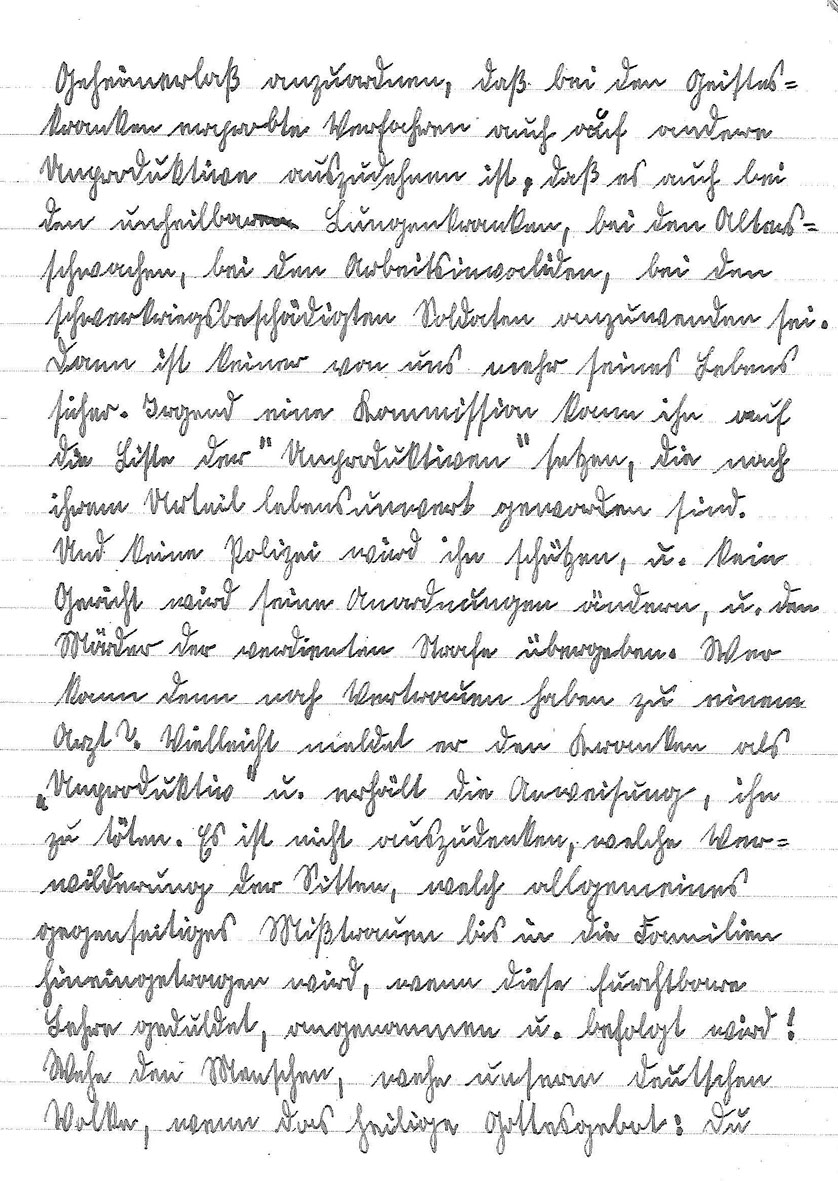 Geheimerlaß anzuordnen, daß bei den Geistes=
kranken erprobte Verfahren auch auf andere
Unproduktive auszudehnen ist, daß es auch bei
den unheilbaren Lungenkranken, bei den Alters=
schwachen, bei den Arbeitsinvaliden, bei den
schwerkriegsbeschädigten Soldaten anzuwenden sei.
Dann ist keiner von uns mehr seines Lebens
sicher. Irgend eine Kommission kann ihn auf
die Liste der "Unproduktiven" setzen, die nach
ihrem Urteil lebensunwert geworden sind.
Und keine Polizei wird ihn schützen, u. kein
Gericht wird seine Anordnungen ändern, u. den
Mörder der verdienten Strafe übergeben. Wer
kann denn noch Vertrauen haben zu einem
Arzt?. Vielleicht meldet er den Kranken als
„Unproduktiv" u. erhält die Anweisung, ihn
zu töten. Es ist nicht auszudenken, welche Ver=
wilderung der Sitten, welch allgemeines
gegenseitiges Mißtrauen bis in die Familien
hineingetragen wird, wenn diese furchtbare
Lehre geduldet, angenommen u. befolgt wird!
Wehe den Menschen, wehe unserm deutschen
Volke, wenn das heilige Gottesgebot: Du